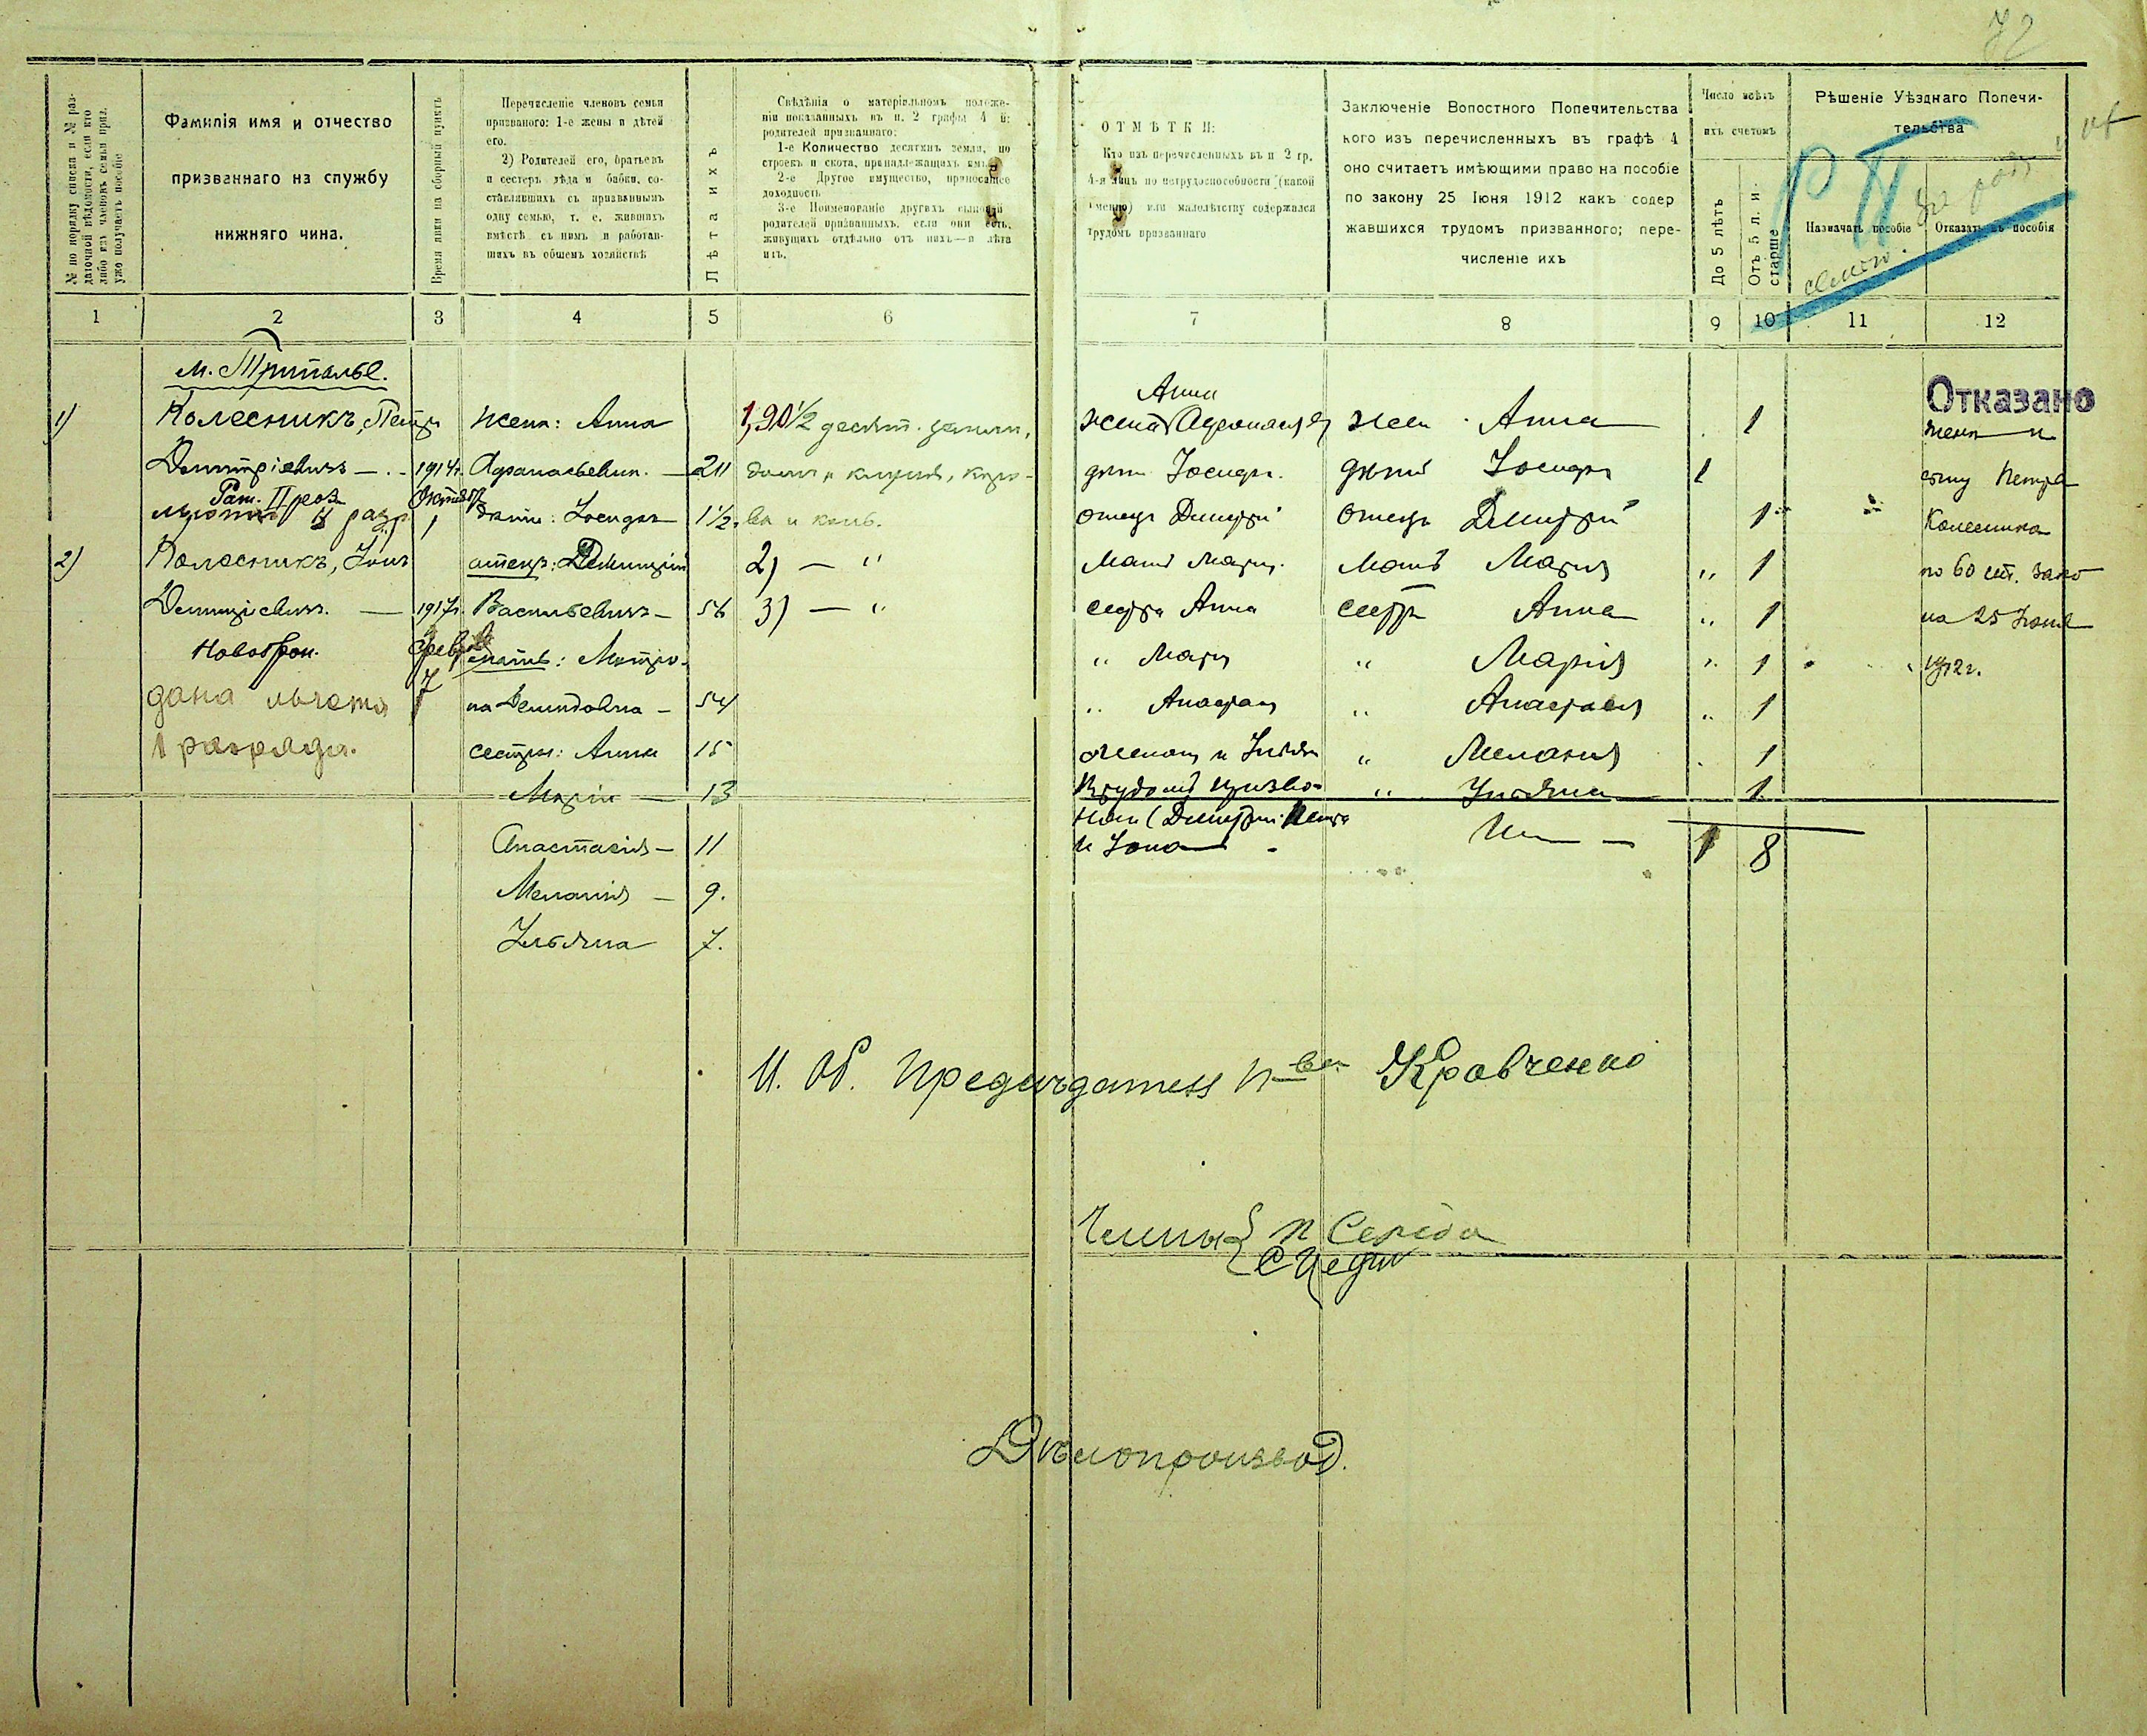 72
№ по порядку списка и № раз-
даточной вѣдомости, если кто
либо изъ членовъ семьи приз.
уже получаетъ пособіе
Фамилія имя и отчество
призваннаго на службу
нижняго чина.
Время явки на сборный пунктъ
Перечисленіе членовъ семьи
призваного: 1-е жены и дѣтей
его.
2) Родителей его, братьевъ
и сестеръ дѣда и бабки, со-
ставлявшихъ съ призваннымъ
одну семью, т. е. жившихъ
вмѣстѣ съ нимъ и работав-
шихъ въ общемъ хозяйствѣ
Лѣта ихъ
Свѣдѣнія о матеріальномъ положе-
ніи показанныхъ въ п. 2 графы 4 й:
родителей призваннаго:
1-е Количество десятинъ земли, по
строекъ и скота, принадлежащихъ имъ
2-е Другое имущество, приносящее
доходность
3-е Поименованіе другихъ сыновей
родителей призванныхъ, если они есть,
живущихъ отдѣльно отъ нихъ—и лѣта
ихъ.
ОТМѢТКИ:
Кто изъ перечисленныхъ въ п 2 гр.
4-я лицъ по нетрудоспособности (какой
именно) или малолѣтству содержался
трудомъ призваннаго
Заключеніе Вопостного Попечительства
кого изъ перечисленныхъ въ графѣ 4
оно считаетъ имѣющими право на пособіе
по закону 25 Іюня 1912 какъ содер
жавшихся трудомъ призванного; пере-
численіе ихъ
Число всѣхъ
ихъ счетомъ
До 5 лѣтъ
Отъ 5 л. и
старше
Рѣшеніе Уѣзднаго Попечи-
тельства
Назначать пособіе
Отказать въ пособія
1 2 3 4 5 6 7 8 9 10 11 12
м. Триполье.
1) Колесникъ, Петръ
Димитріевичъ —
Рат. II раз.
2) Колесникъ, Іонъ
Димитріевичъ. —
Новобран.
дана льгота
1 разряда.
1914г.
Октября
1
1917г.
Февр
7
жена: Анна
Афанасьевна. — 21
дѣти: Іосифъ 1½
отецъ: Димитрій
Васильевичъ — 56
мать: Матро-
на Демидовна — 54
сестры: Анна 15
Марія — 13
Анастасія — 11
Меланія — 9.
Ульяна 7.
1,90½ десят. земли,
домъ и клуня, коро-
ва и конь.
2) — "
3) — "
Анна
жена
дѣти Іосифъ.
отецъ Дмитрій
Мать
сестра Анна
" Марія
" Анастас
и Ульян
Трудомъ призва-
Дмитрій Петра
и Іона
жен Анна 1
дѣти Іосифъ 1
отецъ Дмитрій 1
Мать Марія " 1
сестра Анна " 1
" Марія " 1
" Анастасія " 1
" Меланія 1
" Ульяна 1
1 8
Отказано
жена и
сыну Петра
Колесника
по 60 ст. зако
на 25 Іюня
1912г.
И. Об. Предсѣдателя П-ва Кравченко
Члены { П Середа
Дѣлопроизвод.